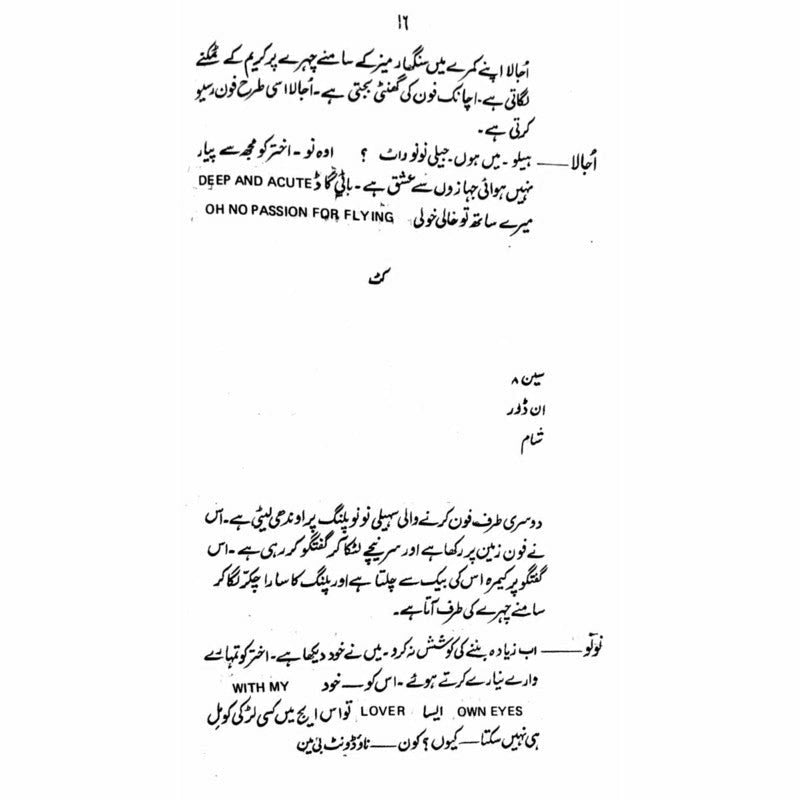 ۱۶
اُجالا اپنے کمرے میں سنگھار میز کے سامنے چہرے پر کریم کے ٹمکنے
لگاتی ہے۔ اچانک فون کی گھنٹی بجتی ہے۔ اُجالا اسی طرح فون رسیو
کرتی ہے۔
اُجالا —— ہیلو۔ میں ہوں۔ جیلی نونو واٹ ؟ اوہ نو۔ اختر کو مجھ سے پیار
نہیں ہوائی جہازوں سے عشق ہے۔ بائی گاڈ DEEP AND ACUTE
میرے ساتھ تو خالی خولی OH NO PASSION FOR FLYING
کٹ
سین ۸
ان ڈور
شام
دوسری طرف فون کرنے والی سہیلی نونو پلنگ پر اوندھی لیٹی ہے۔ اس
نے فون زمین پر رکھا ہے اور سر نیچے لٹکا کر گفتگو کر رہی ہے۔ اس
گفتگو پر کیمرہ اس کی بیک سے چلتا ہے اور پلنگ کا سارا چکر لگا کر
سامنے چہرے کی طرف آتا ہے۔
نونو —— اب زیادہ بننے کی کوشش نہ کرو۔ میں نے خود دیکھا ہے۔ اختر کو تمہارے
وارے نیارے کرتے ہوئے۔ اس کو — خود WITH MY
OWN EYES ایسا LOVER تو اس ایج میں کسی لڑکی کو مِل
ہی نہیں سکتا — کیوں؟ کون — ناؤ ڈونٹ بی مین